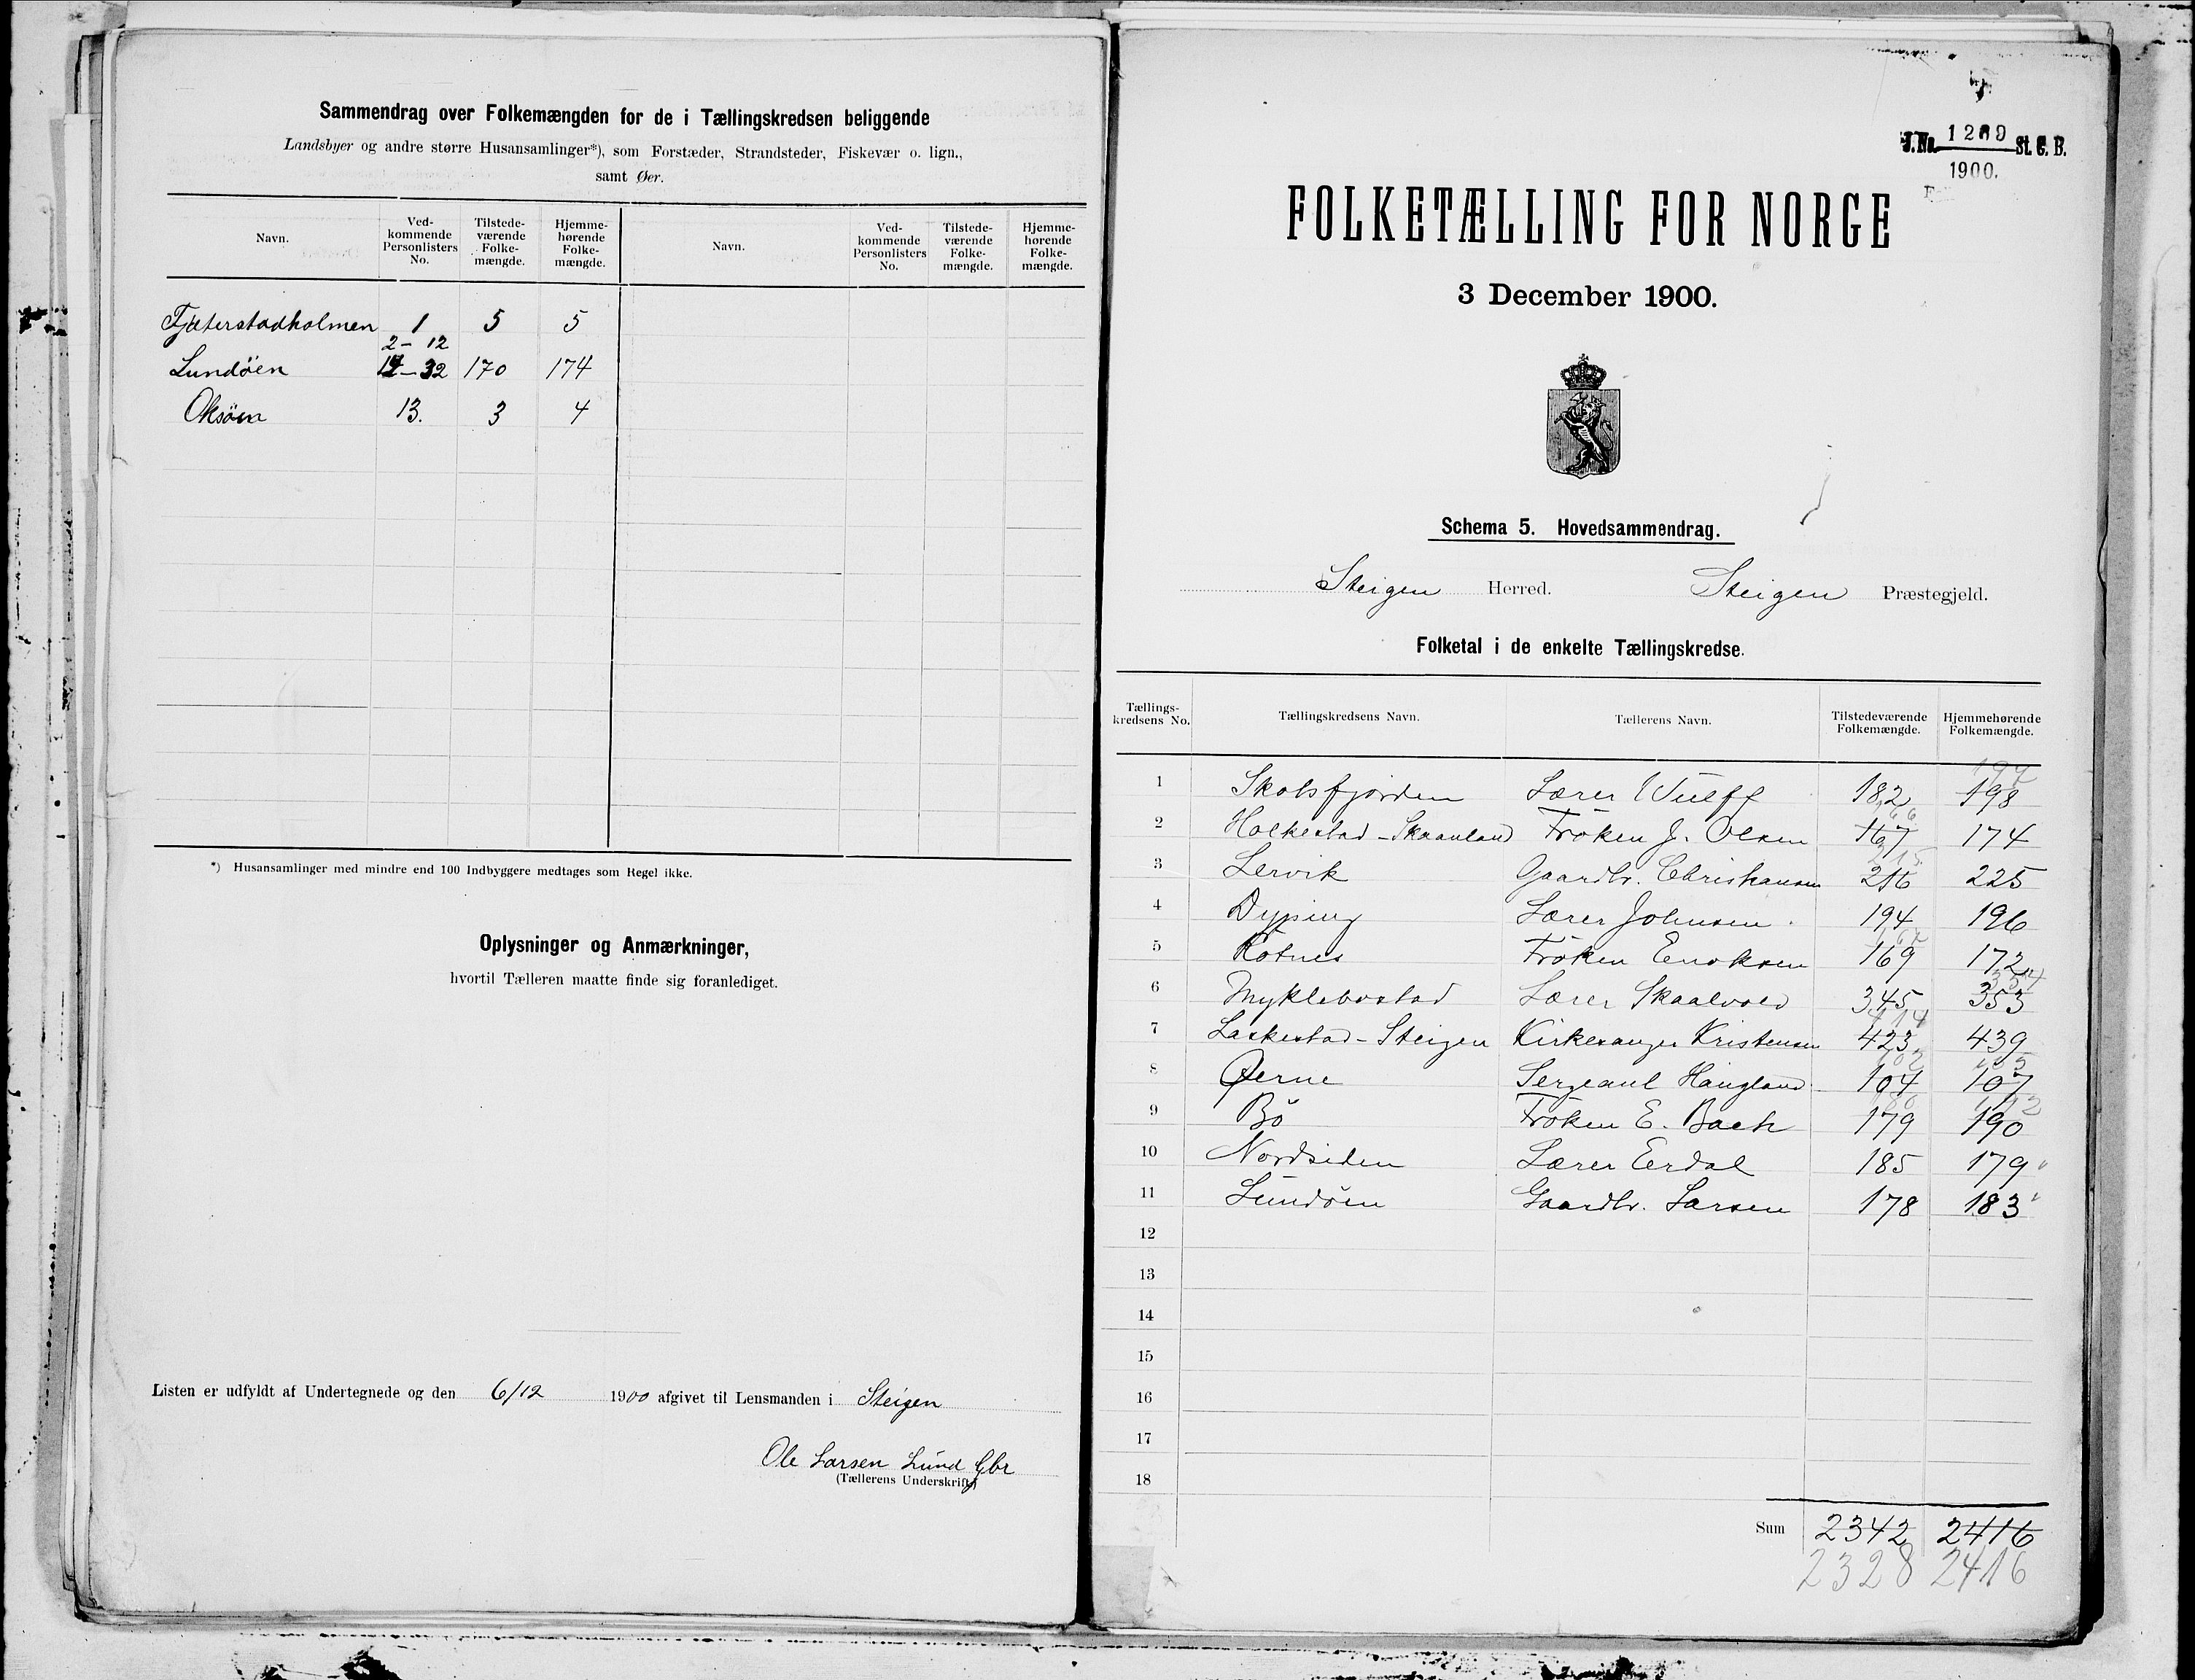 Sammendrag over Folkemængden for de i Tællingskredsen beliggende
Landsbyer og andre større Husansamlinger*), som Forstæder, Strandsteder, Fiskevær o. lign.,
samt Øer.
Navn. Ved-kommende Personlisters No. Tilstede-værende Folke-mængde. Hjemme-hørende Folke-mængde. Navn. Ved-kommende Personlisters No. Tilstede-værende Folke-mængde. Hjemme-hørende Folke-mængde.
Fjæterstadholmen 1 5 5
2 - 12
Lundöen 14-32 170 174
Oksöen 13. 3 4
*) Husansamlinger med mindre end 100 Indbyggere medtages som Regel ikke.
Oplysninger og Anmærkninger,
hvortil Tælleren maatte finde sig foranlediget.
Listen er udfyldt af Undertegnede og den 6/12 1900 afgivet til Lensmanden i Steigen
Ole Larsen Lund Gbr
(Tællerens Underskrift)
J. No. 1269 St. C. B.
1900.
FOLKETÆLLING FOR NORGE
3 December 1900.
Schema 5. Hovedsammendrag.
Steigen Herred. Steigen Præstegjeld.
Folketal i de enkelte Tællingskredse.
Tællings-kredsens No. Tællingskredsens Navn. Tællerens Navn. Tilstedeværende Folkemængde. Hjemmehørende Folkemængde.
197
1 Skotsfjorden Lærer Wulff 182 198
66
2 Holkestad - Skaanland Fröken J. Olsen 167 174
215
3 Lervik Gaardbr. Christiansen 216 225
4 Dyping Lærer Johnsen. 194 196
5 Rotnes Fröken Enoksen 169 172
354
6 Myklebostad Lærer Skaalvold 345 353
414
7 Laskestad - Steigen Kirkesanger Kristensen 423 439
102 105
8 Øerne Sergeant Haugland 104 107
180 192
9 Bö Fröken E. Bach 179 190
10 Nordsiden Lærer Eerdal 185 179
11 Lundöen Gaardbr. Larsen 178 183
12
13
14
15
16
17
18
Sum 2342 2416
2328 2416